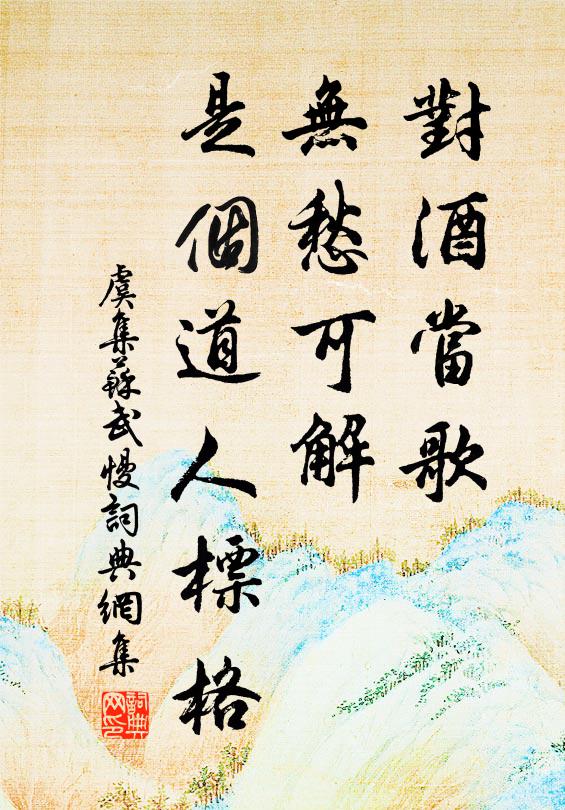 對酒當歌
無愁可解
是個道人標格
虞集蘇武慢詞典網集
詞典網印